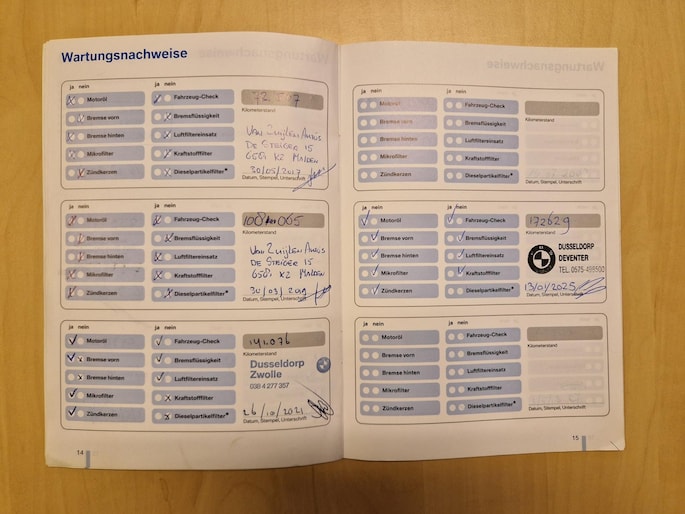 Wartungsnachweise
ja nein ja nein
Motoröl Fahrzeug-Check
Bremse vorn Bremsflüssigkeit Kilometerstand
Bremse hinten Luftfiltereinsatz
Mikrofilter Kraftstofffilter
Zündkerzen Dieselpartikelfilter*
Van Zuijlen Auto's
De Steiger 15
KZ Malden
30/05/2017
Datum, Stempel, Unterschrift
ja nein ja nein
Motoröl Fahrzeug-Check
Bremse vorn Bremsflüssigkeit Kilometerstand
Bremse hinten Luftfiltereinsatz
Mikrofilter Kraftstofffilter
Zündkerzen Dieselpartikelfilter*
065
Van Zuijlen Auto's
De Steiger 15
KZ Malden
30/03/2019
Datum, Stempel, Unterschrift
ja nein ja nein
Motoröl Fahrzeug-Check 141076
Bremse vorn Bremsflüssigkeit Kilometerstand
Bremse hinten Luftfiltereinsatz
Mikrofilter Kraftstofffilter
Zündkerzen Dieselpartikelfilter*
Dusseldorp
Zwolle
038 4 277 357
26/10/2021
Datum, Stempel, Unterschrift
14
ja nein ja nein
Motoröl Fahrzeug-Check
Bremse vorn Bremsflüssigkeit Kilometerstand
Bremse hinten Luftfiltereinsatz
Mikrofilter Kraftstofffilter
Zündkerzen Dieselpartikelfilter*
Datum, Stempel, Unterschrift
ja nein ja nein
Motoröl Fahrzeug-Check 172629
Bremse vorn Bremsflüssigkeit Kilometerstand
Bremse hinten Luftfiltereinsatz
Mikrofilter Kraftstofffilter
Zündkerzen Dieselpartikelfilter*
DUSSELDORP
DEVENTER
TEL. 0575-495500
13/01/2025
Datum, Stempel, Unterschrift
ja nein ja nein
Motoröl Fahrzeug-Check
Bremse vorn Bremsflüssigkeit Kilometerstand
Bremse hinten Luftfiltereinsatz
Mikrofilter Kraftstofffilter
Zündkerzen Dieselpartikelfilter*
Datum, Stempel, Unterschrift
15